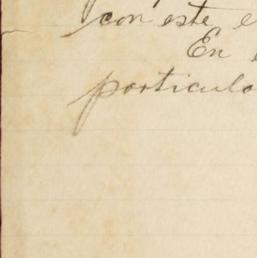 con este e
En
particula